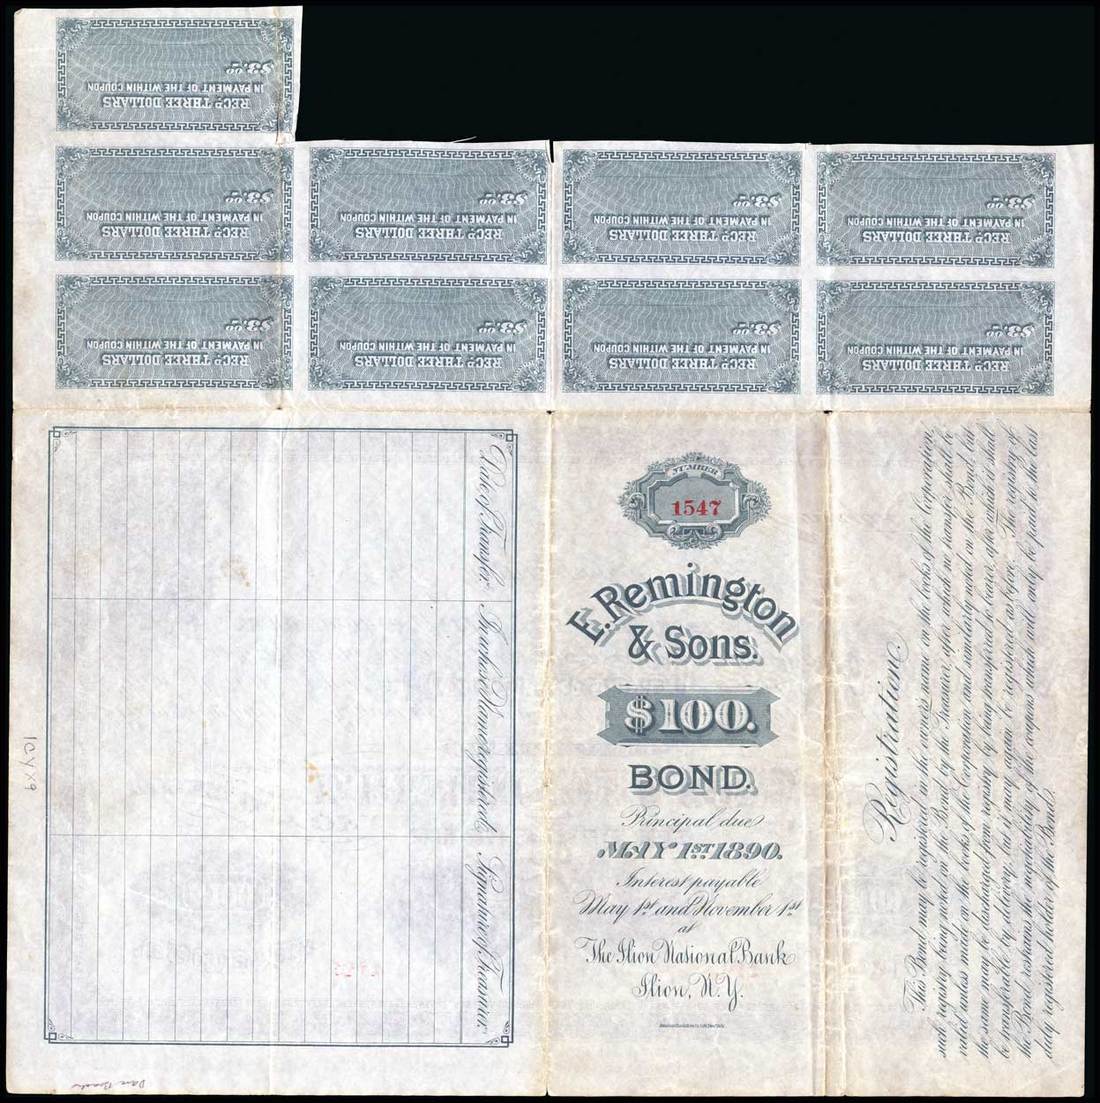 RECD THREE DOLLARS
IN PAYMENT OF THE WITHIN COUPON
$3.00
RECD THREE DOLLARS
IN PAYMENT OF THE WITHIN COUPON
$3.00
RECD THREE DOLLARS
IN PAYMENT OF THE WITHIN COUPON
$3.00
RECD THREE DOLLARS
IN PAYMENT OF THE WITHIN COUPON
$3.00
RECD THREE DOLLARS
IN PAYMENT OF THE WITHIN COUPON
$3.00
RECD THREE DOLLARS
IN PAYMENT OF THE WITHIN COUPON
$3.00
RECD THREE DOLLARS
IN PAYMENT OF THE WITHIN COUPON
$3.00
RECD THREE DOLLARS
IN PAYMENT OF THE WITHIN COUPON
$3.00
RECD THREE DOLLARS
IN PAYMENT OF THE WITHIN COUPON
$3.00
Date of Transfer.
In whose Name registered.
Signature of Treasurer.
NUMBER
1547
E. Remington
& Sons.
$100.
BOND.
Principal due
MAY 1ST 1890.
Interest payable
May 1st and November 1st
at
The Ilion National Bank
Ilion, N.Y.
Registration
This Bond may be registered in the owners name on the books of the Corporation,
such registry being noted on the Bond by the Treasurer, after which no transfer shall be
valid unless made on the books of the Corporation and similarly noted on the Bond, but
the same may be discharged from registry by being transferred to bearer, after which it shall
be transferable by delivery, but it may again be registered as before. The registry of
the Bond restrains the negotiability of the coupons which will only be paid to the last
duly registered holder of the Bond.